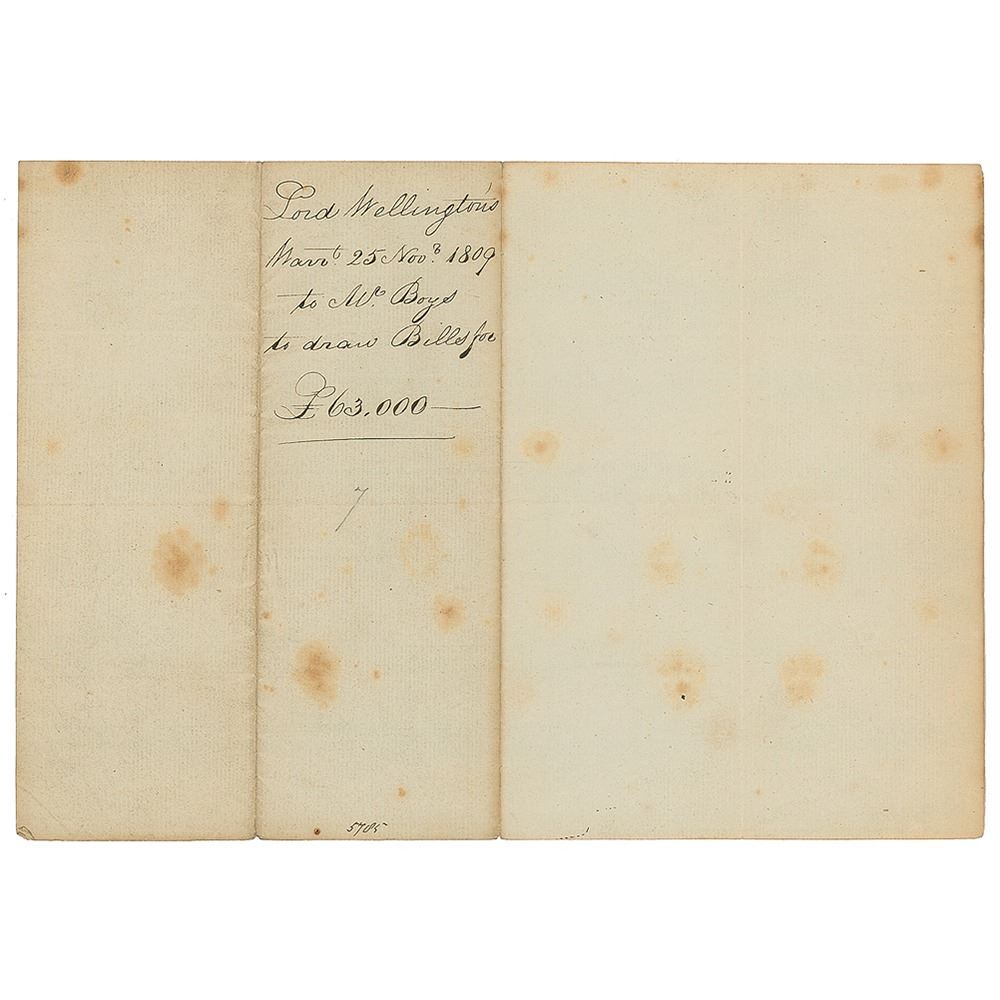 Lord Wellington's
Warrt. 25 Novr. 1809
to Mr. Boys
to draw Bills for
£63,000—
7
5785